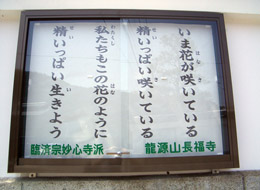 いま花が咲いている
精いっぱい咲いている
私たちもこの花のように
精いっぱい生きよう
龍源山長福寺
臨済宗妙心寺派